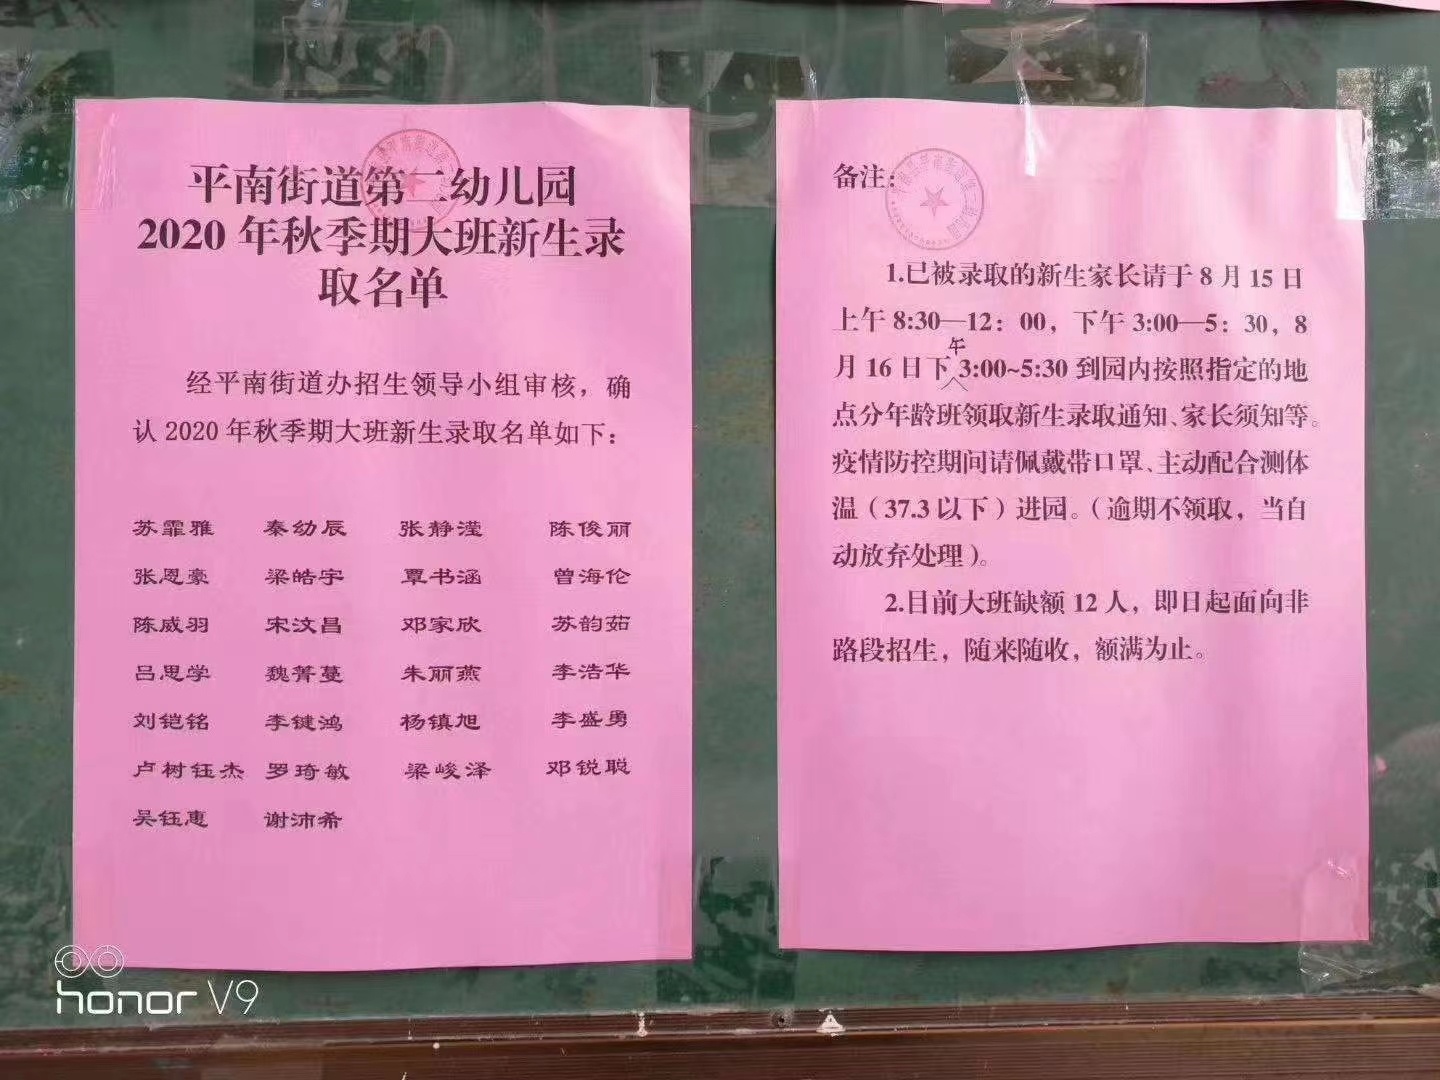 平南街道第二幼儿园
2020年秋季期大班新生录
取名单
经平南街道办招生领导小组审核，确
认2020年秋季期大班新生录取名单如下：
苏霏雅 秦幼辰 张静滢 陈俊丽
张恩豪 梁皓宇 覃书涵 曾海伦
陈威羽 宋汶昌 邓家欣 苏韵茹
吕思学 魏菁蔓 朱丽燕 李浩华
刘铠铭 李键鸿 杨镇旭 李盛勇
卢树钰杰 罗琦敏 梁峻泽 邓锐聪
吴钰惠 谢沛希
备注：
1.已被录取的新生家长请于8月15日
上午8:30—12：00，下午3:00—5：30，8
月16日下午3:00~5:30到园内按照指定的地
点分年龄班领取新生录取通知、家长须知等。
疫情防控期间请佩戴带口罩、主动配合测体
温（37.3以下）进园。（逾期不领取，当自
动放弃处理）。
2.目前大班缺额12人，即日起面向非
路段招生，随来随收，额满为止。
honor V9